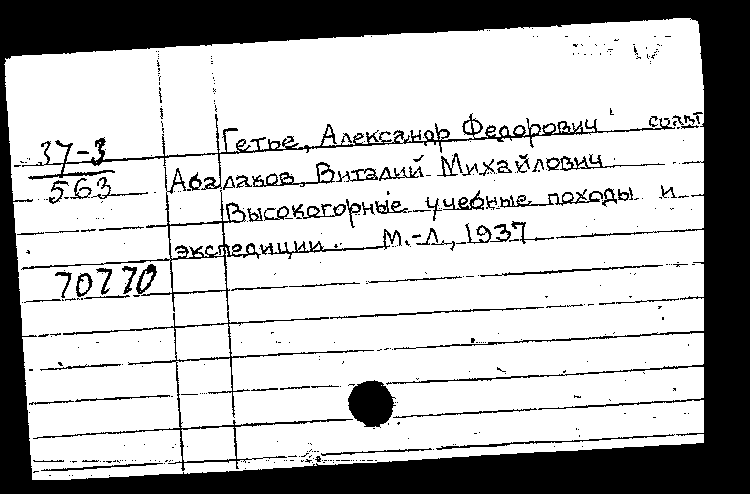 37-3
563
Гетье, Александр Федорович соавт.
Абалаков, Виталий Михайлович
Высокогорные учебные походы и
экспедиции. М.-Л., 1937
70770